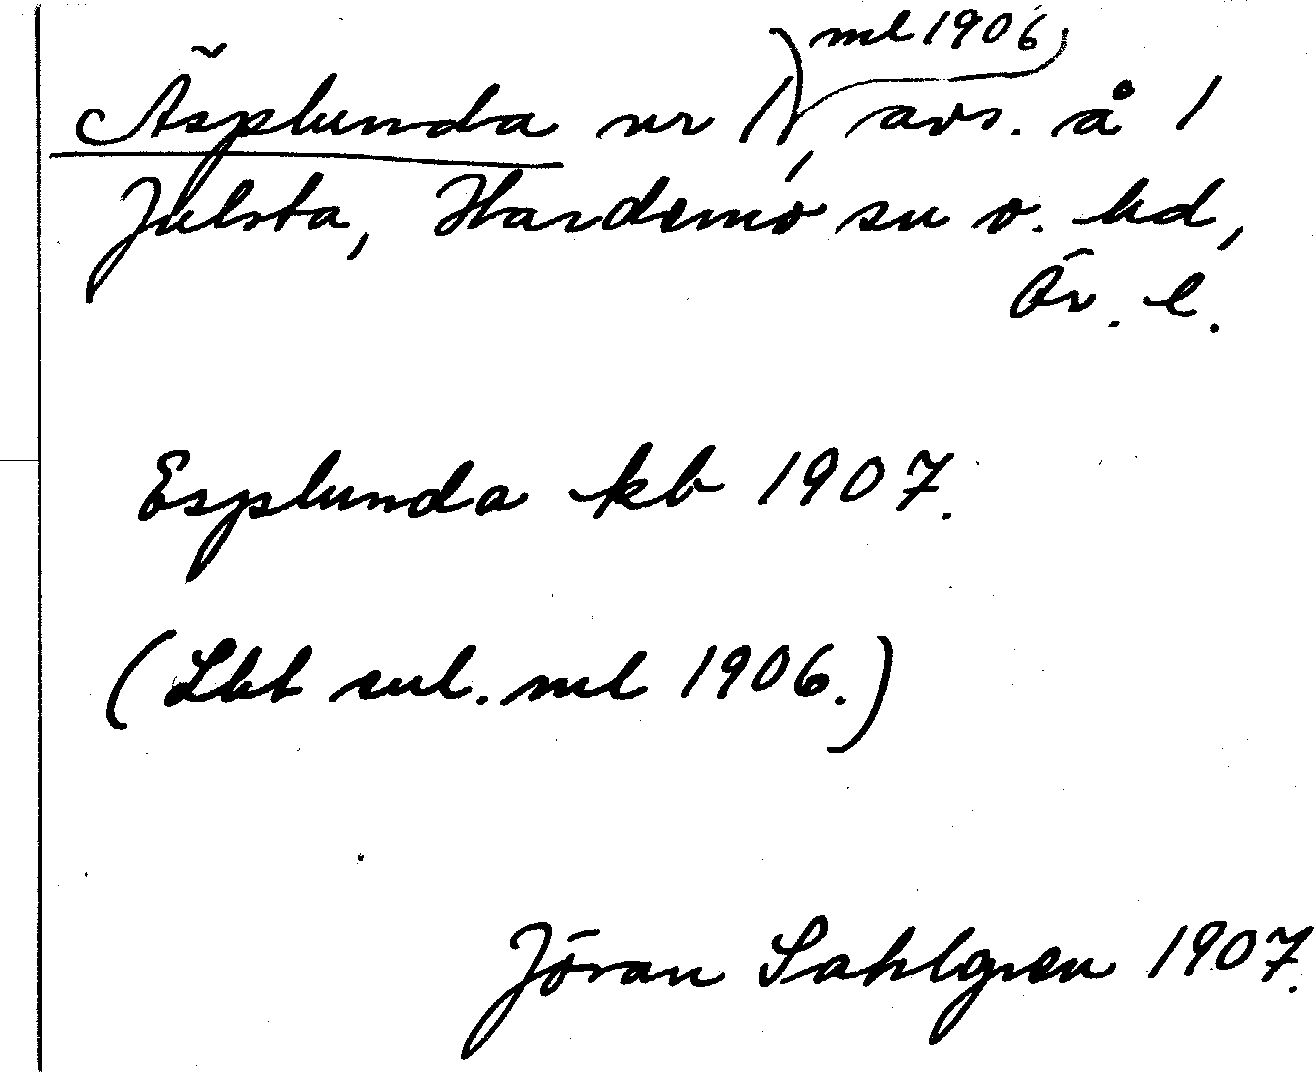 ml 1906
Äsplunda nr 1, avs. å 1
Julsta, Hardemo sn o. hd,
Ör. l.
Esplunda kb 1907.
(Lbt enl. ml 1906.)
Jöran Sahlgren 1907.